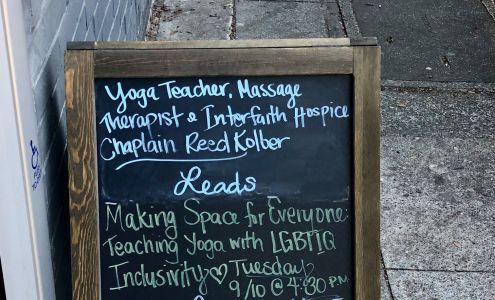 Yoga Teacher, Massage
Therapist & Interfaith Hospice
Chaplain Reed Kolber
Leads
Making Space for Everyone:
Teaching Yoga with LGBTIQ
Inclusivity ♡ Tuesday
9/10 @ 4:30 P.M.